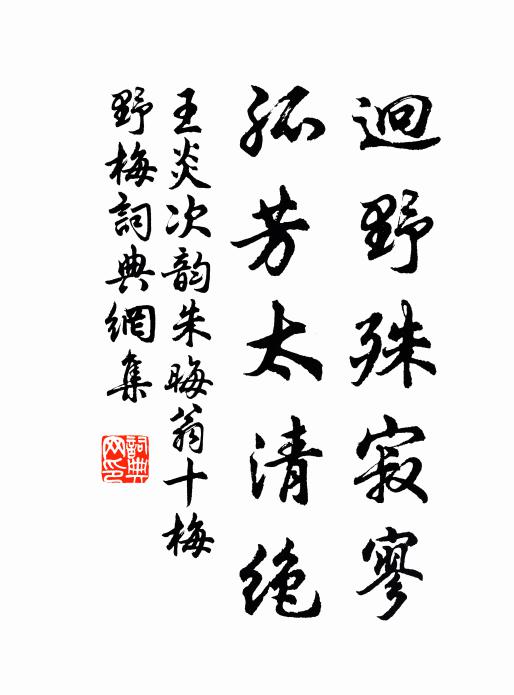 迥野殊寂寥
孤芳太清绝
王炎次韵朱晦翁十梅
野梅詞典網集
詞典网印